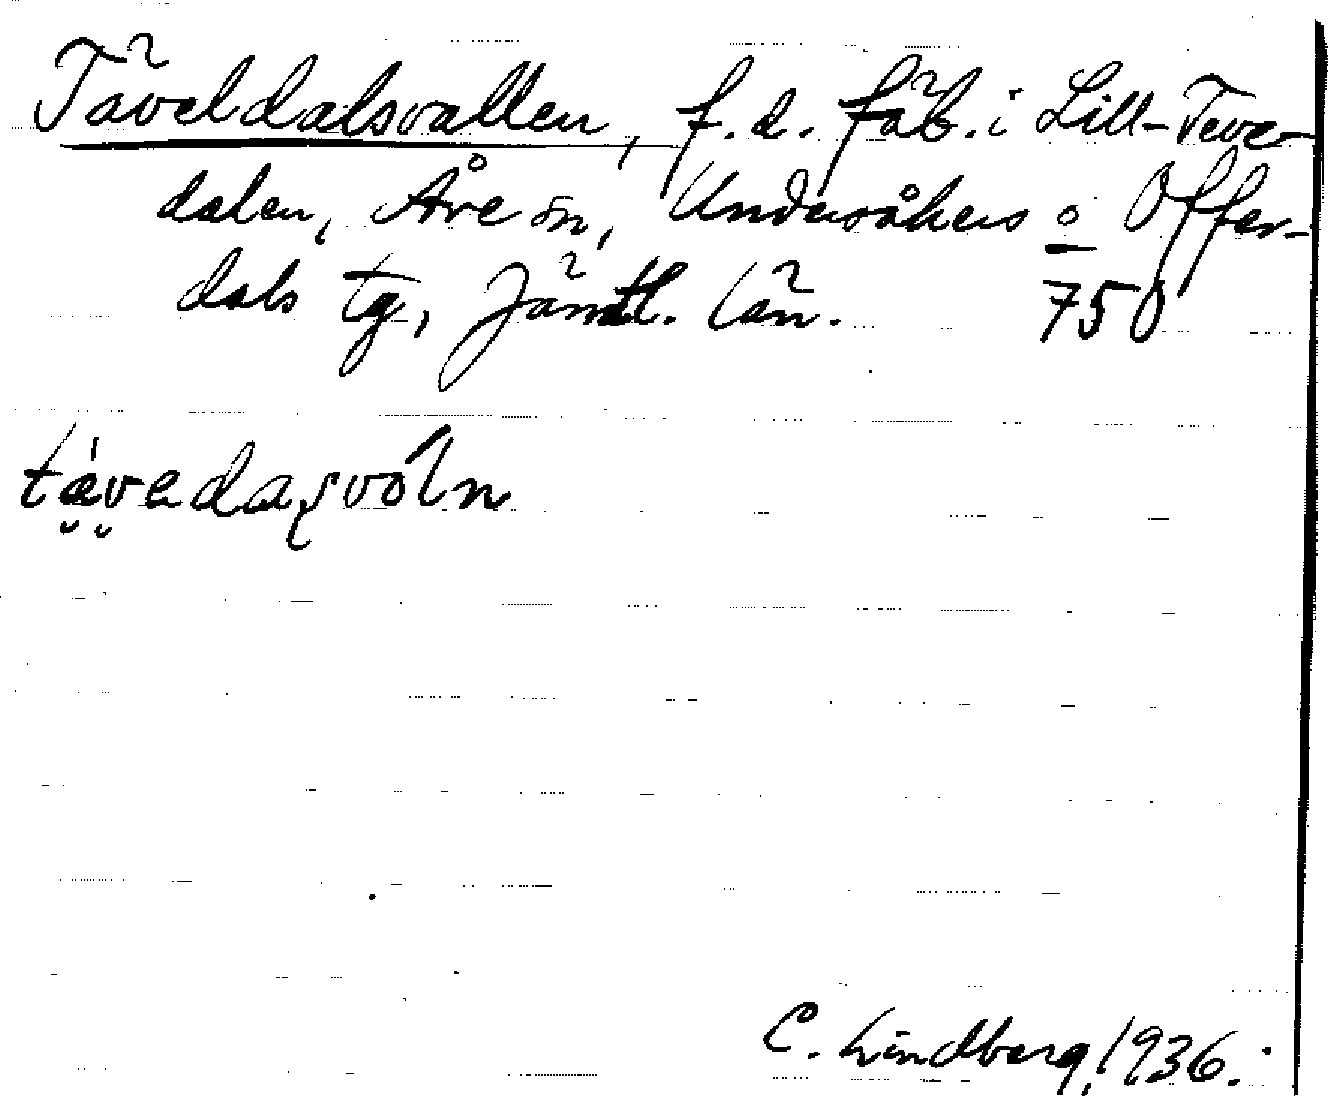 Täveldalsvallen, f.d. fäb. i Lill-Teve-
dalen, Åre sn, Undersåkers o Offer-
dals tg, Jämtl. län. 750
C. Lindberg, 1936.